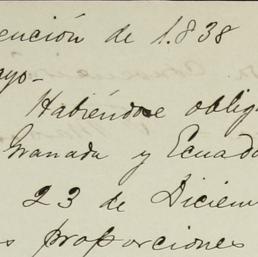 ención de 1.838
ayo-
Habiéndose oblig
Granada y Ecuado
23 de Diciem
s proporciones